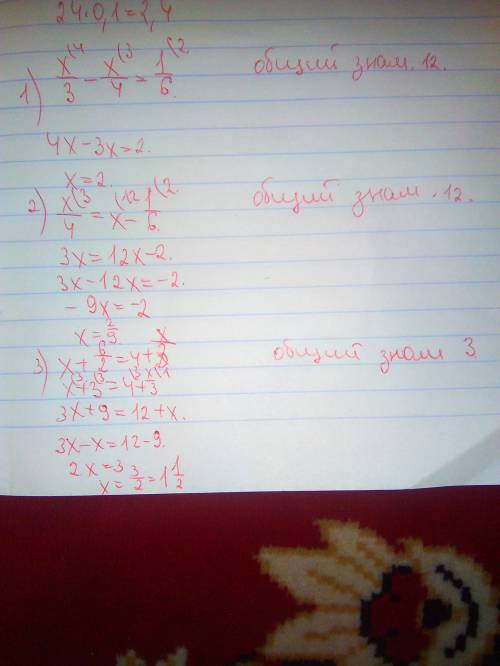 24·0,1=2,4
1) x/3 (4 - x/4 (3 = 1/6 (2. общий знам. 12.
4x-3x=2.
x=2.
2) x/4 (3 = x (12 - 1/6 (2. общий знам. 12.
3x=12x-2.
3x-12x=-2.
-9x=-2
x=2/9
3) x+6/2=4+x/3 общий знам 3
x(3+3(3=4(3+x/3(1
3x+9=12+x.
3x-x=12-9.
2x=3
x=3/2=1 1/2